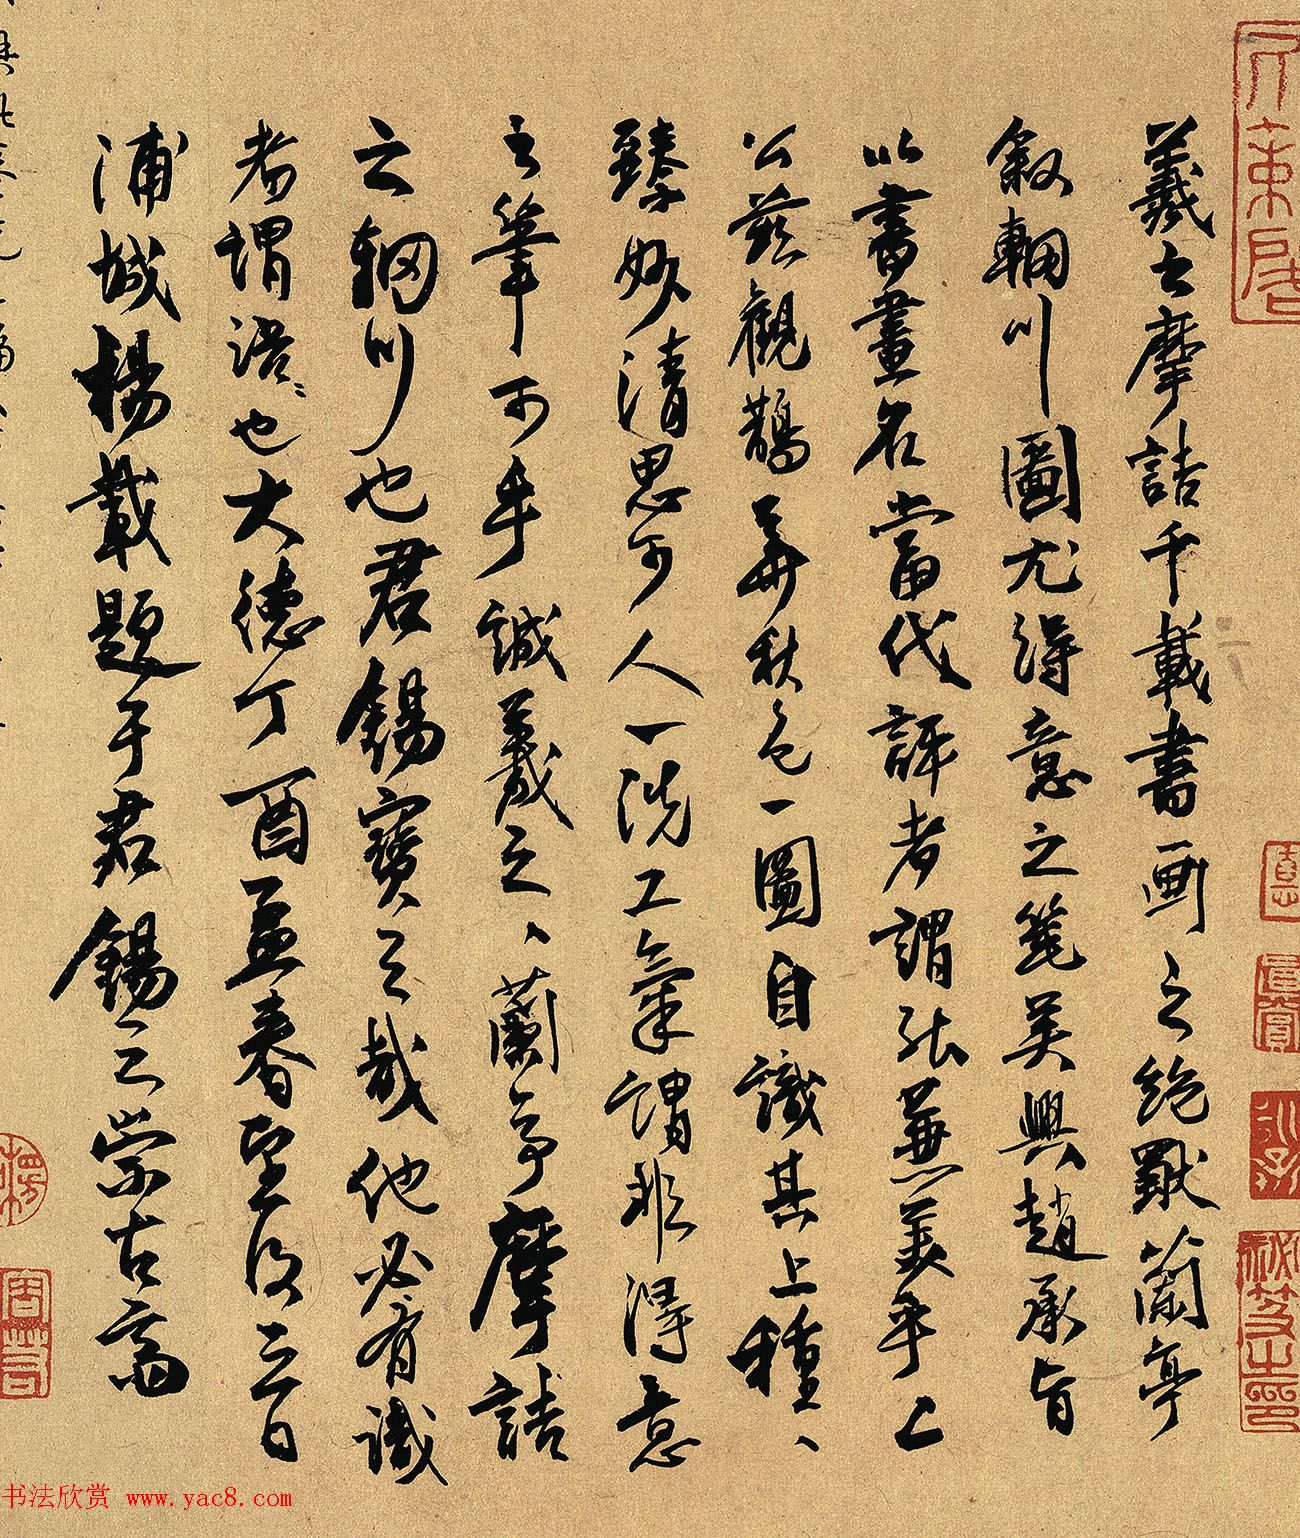 羲之摩詰千載書画之絶獨蘭亭
叙輞川圖尤得意之筆吴興趙承旨
以書畫名當代評者謂能兼美乎二
公茲觀鵲華秋色一圖自識其上種〻
臻妙清思可人一洗工氣謂非得意
之筆可乎誠羲之〻蘭亭摩詰
之輞川也君錫寶之哉他必有識
者謂語〻也大德丁酉孟春望後三日
浦城楊載題于君錫之崇古齋
书法欣赏 www.yac8.com